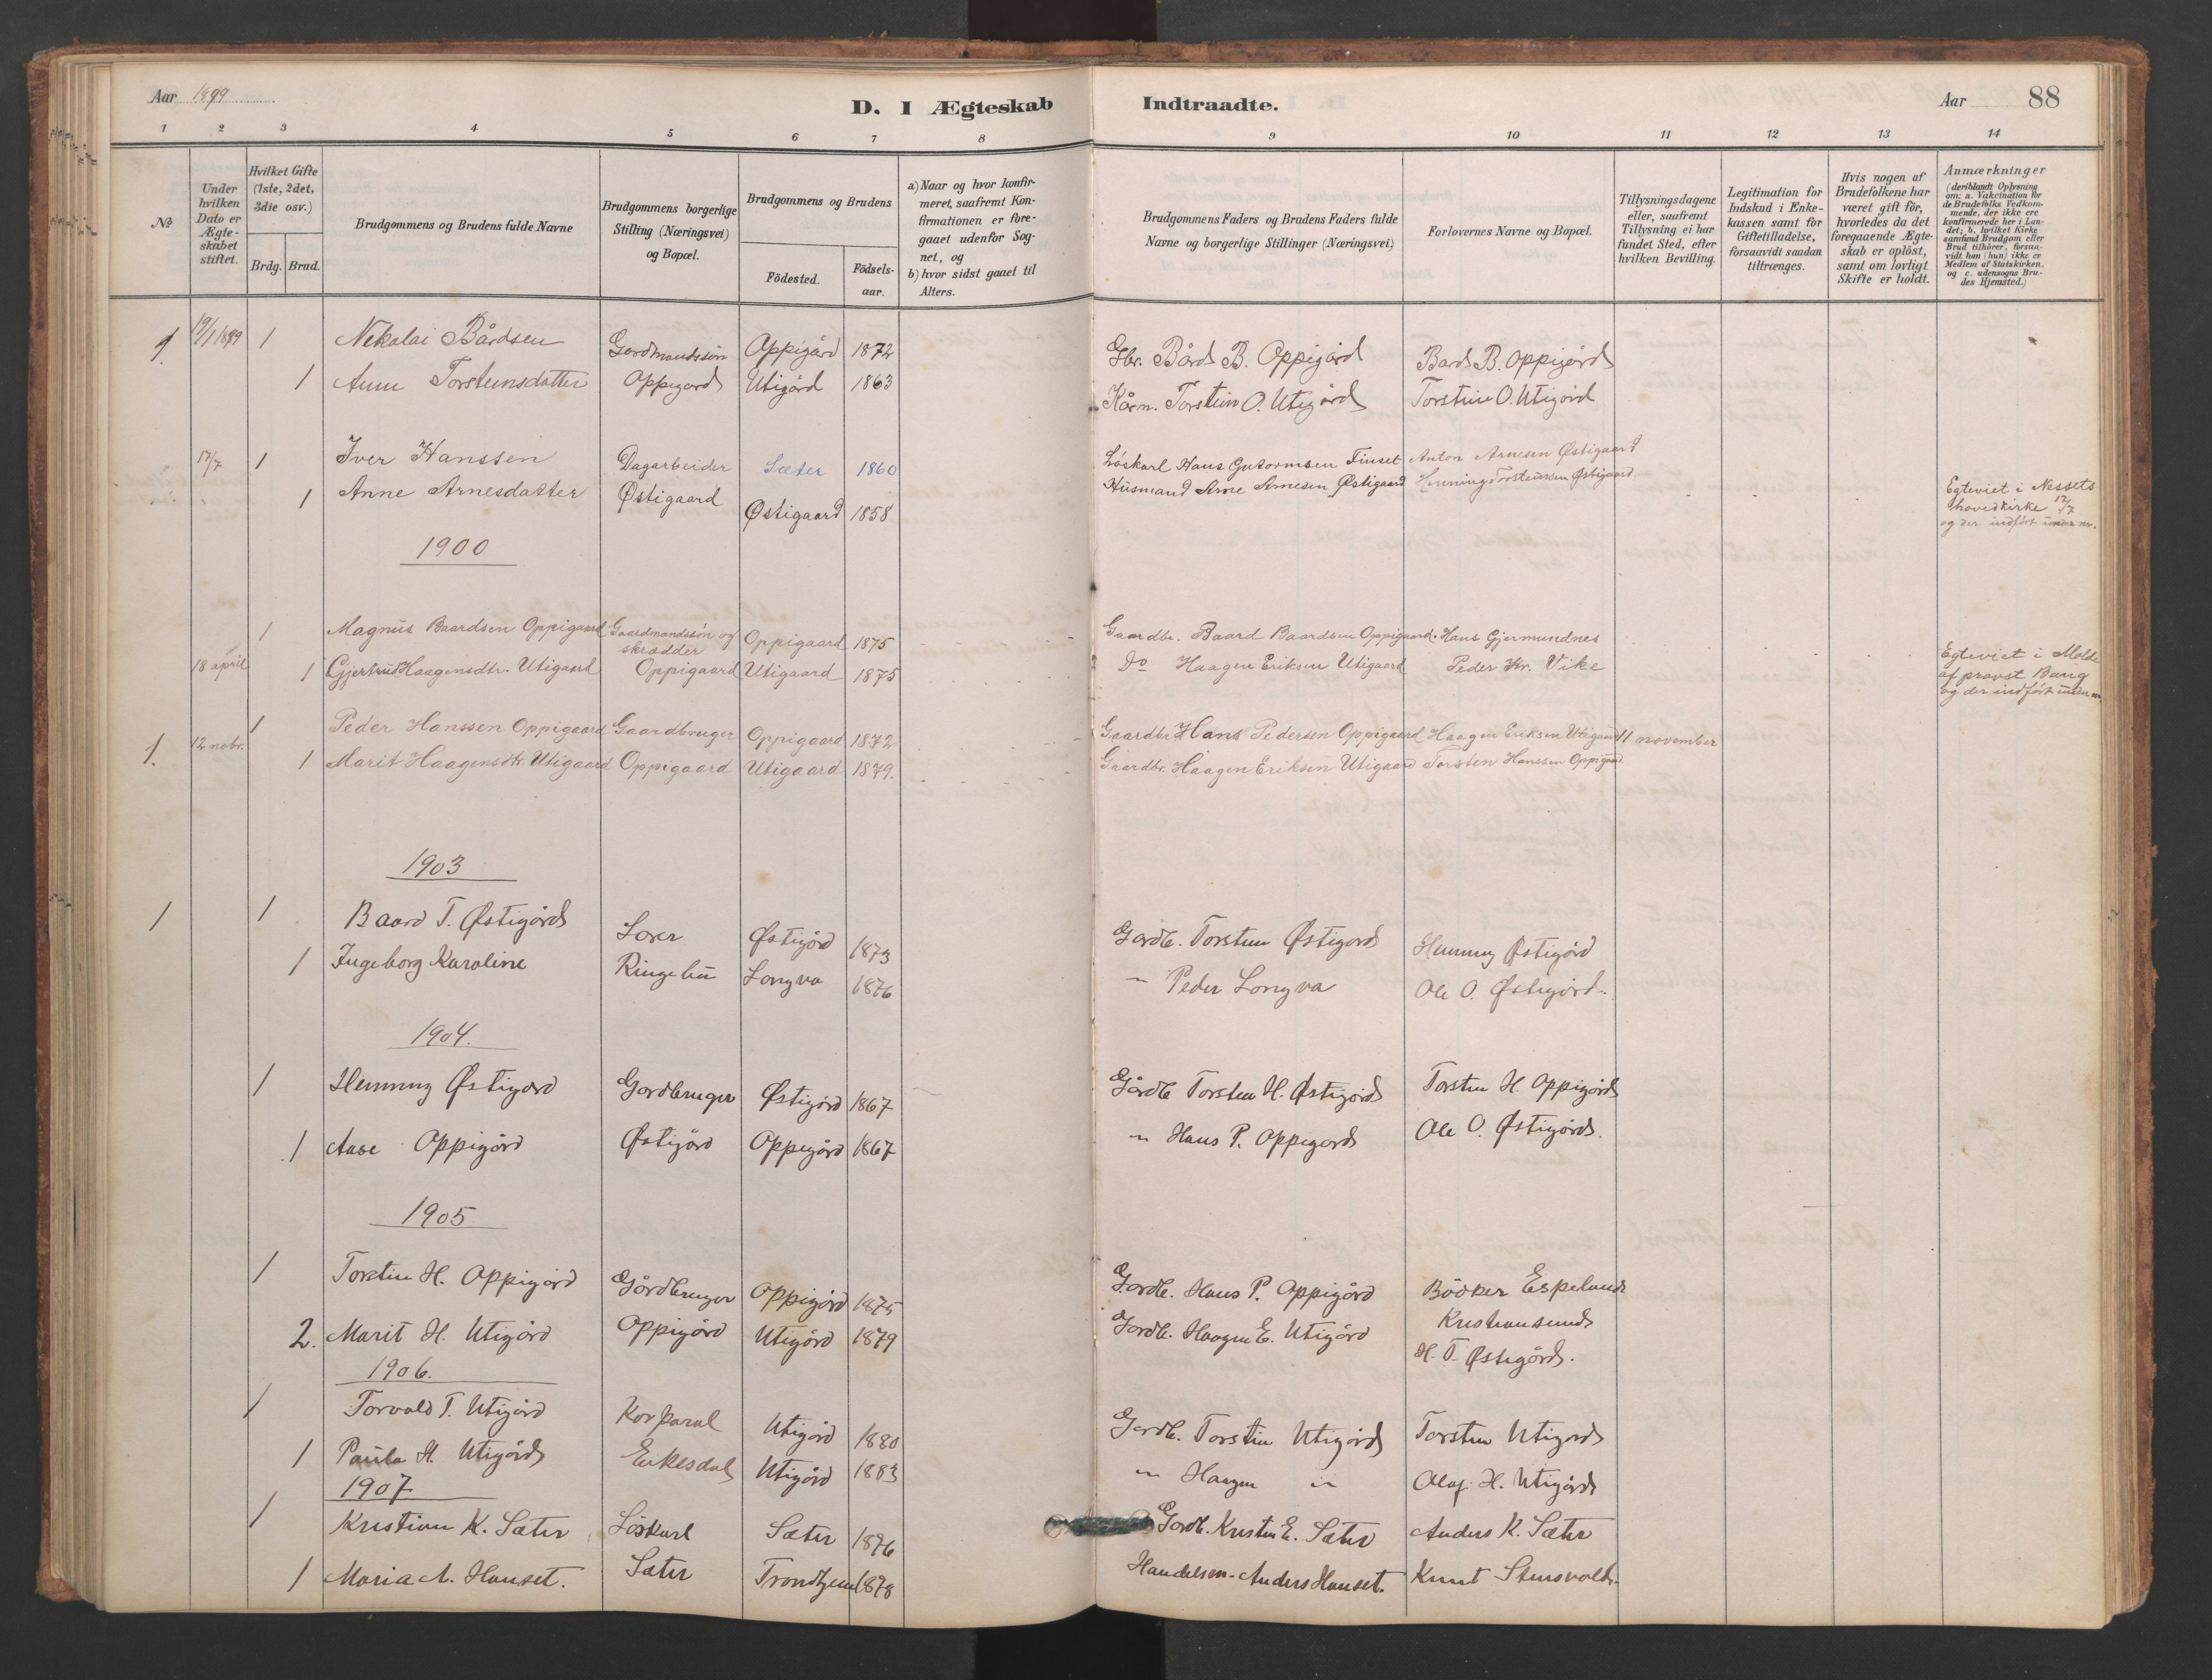 Aar 1899
D. I Ægteskab Indtraadte.
Aar 88
1 2 3 4 5 6 7 8 9 10 11 12 13 14
№
Under hvilken Dato er Ægteskabet stiftet.
Hvilket Gifte (1ste, 2det, 3die osv.)
Brdg. Brud.
Brudgommens og Brudens fulde Navne
Brudgommens borgerlige Stilling (Næringsvei) og Bopæl.
Brudgommens og Brudens
Fødested.
Fødsels-aar.
a) Naar og hvor konfir-
meret, saafremt Kon-
firmationen er fore-
gaaet udenfor Sog-
net, og
b) hvor sidst gaaet til
Alters.
Brudgommens Faders og Brudens Faders fulde
Navne og borgerlige Stillinger (Næringsvei)
Forlovernes Navne og Bopæl.
Tillysningsdagene
eller, saafremt
Tillysning ei har
fundet Sted, efter
hvilken Bevilling.
Legitimation for
Indskud i Enke-
kassen samt for
Giftetilladelse,
forsaavidt saadan
tiltrænges.
Hvis nogen af
Brudefolkene har
været gift før,
hvorledes da det
foregaaende Ægte-
skab er opløst,
samt om lovligt
Skifte er holdt.
Anmærkninger
(deriblandt Oplysning
om: a. Vakcination for
de Brudefolks Vedkom-
mende, der ikke ere
konfirmerede her i Lan-
det; b. hvilket Kirke-
samfund Brudgom eller
Brud tilhører, forsaa-
vidt han (hun) ikke er
Medlem af Statskirken,
og c. udensogns Bru-
des Hjemsted.)
1 19/1 1899 1 Nekolai Bårdsen Gardmandssøn Oppigård 1872 Gbr. Bård B. Oppigård Bard B. Oppigård
1 Anne Torsteinsdatter Oppegard Utigård 1863 Kårm. Torstein O. Utigård Torstein O. Utigård
17/7 1 Iver Hanssen Dagarbeider Sæter 1860 Løskarl Hans Gutormsen Finset Anton Arnesen Østigaard
1 Anne Arnesdatter Østigaard Østigaard 1858 Husmand Arne Arnesen Østigaard Henning Torsteinsen Østigaard
Egteviet i Nessets
hovedkirke 17/7
og der indført under nr.
1900
1 Magnus Baardsen Oppigaard Gaardmandssøn og skrædder Oppigaard 1875 Gaardbr. Baard Baardsen Oppigaard. Hans Gjermundnes
18 april 1 Gjertrud Haagensdtr. Utigaard Oppigaard Utigaard 1875 Do Haagen Eriksen Utigaard Peder Kr. Vike
Egteviet i Molde
af provst Bang
og der indført under nr.
1. 12 nobr. 1 Peder Hanssen Oppigaard Gaardbruger Oppigaard 1872 Gaardbr. Hans Pedersen Oppigaard Haagen Eriksen Utigaard 11 november
1 Marit Haagensdtr. Utigaard Oppigaard Utigaard 1879. Gaardbr. Haagen Eriksen Utigaard Torsten Hanssen Oppigaard
1903
1 1 Baard T. Østigård Østigård 1873 Gardb. Torstein Østigard Henning Østigård
1 Ingeborg Karoline Ringebu Longva 1876 " Peder Longva Ole O. Østigård.
1904.
1 Henning Østigard Gardbruger Østigård 1867 Gårdb Torsten H. Østigård Torsten H. Oppigård
1 Aase Oppigård Østigård Oppigård 1867 " Hans P. Oppegard Ole O. Østigård.
1905
1 Torstin H. Oppigård Gårdbruger Oppigård 1875 Gardb. Hans P. Oppigård Bødker Espeland
Kristiansund
2. Marit H. Utigård Oppigård Utigård 1879 Gordb. Haagen E. Utigård H. T. Østigård.
1906.
1 Torvald T. Utigård Korparal Utigård 1880 Gardb. Torstin Utigård Torstin Utigard
1 Paula H. Utigård Eikesdal Utigård 1883 " Haagen " Olaf H. Utigård
1907
1 Kristian K. Sæter Løskarl Sæter 1876 Gardb. Kristen E. Sæter Anders K. Sæter
1 Maria A. Hanset. Sæter Trondhjem 1878 Handelsm. Anders Hanset. Knut